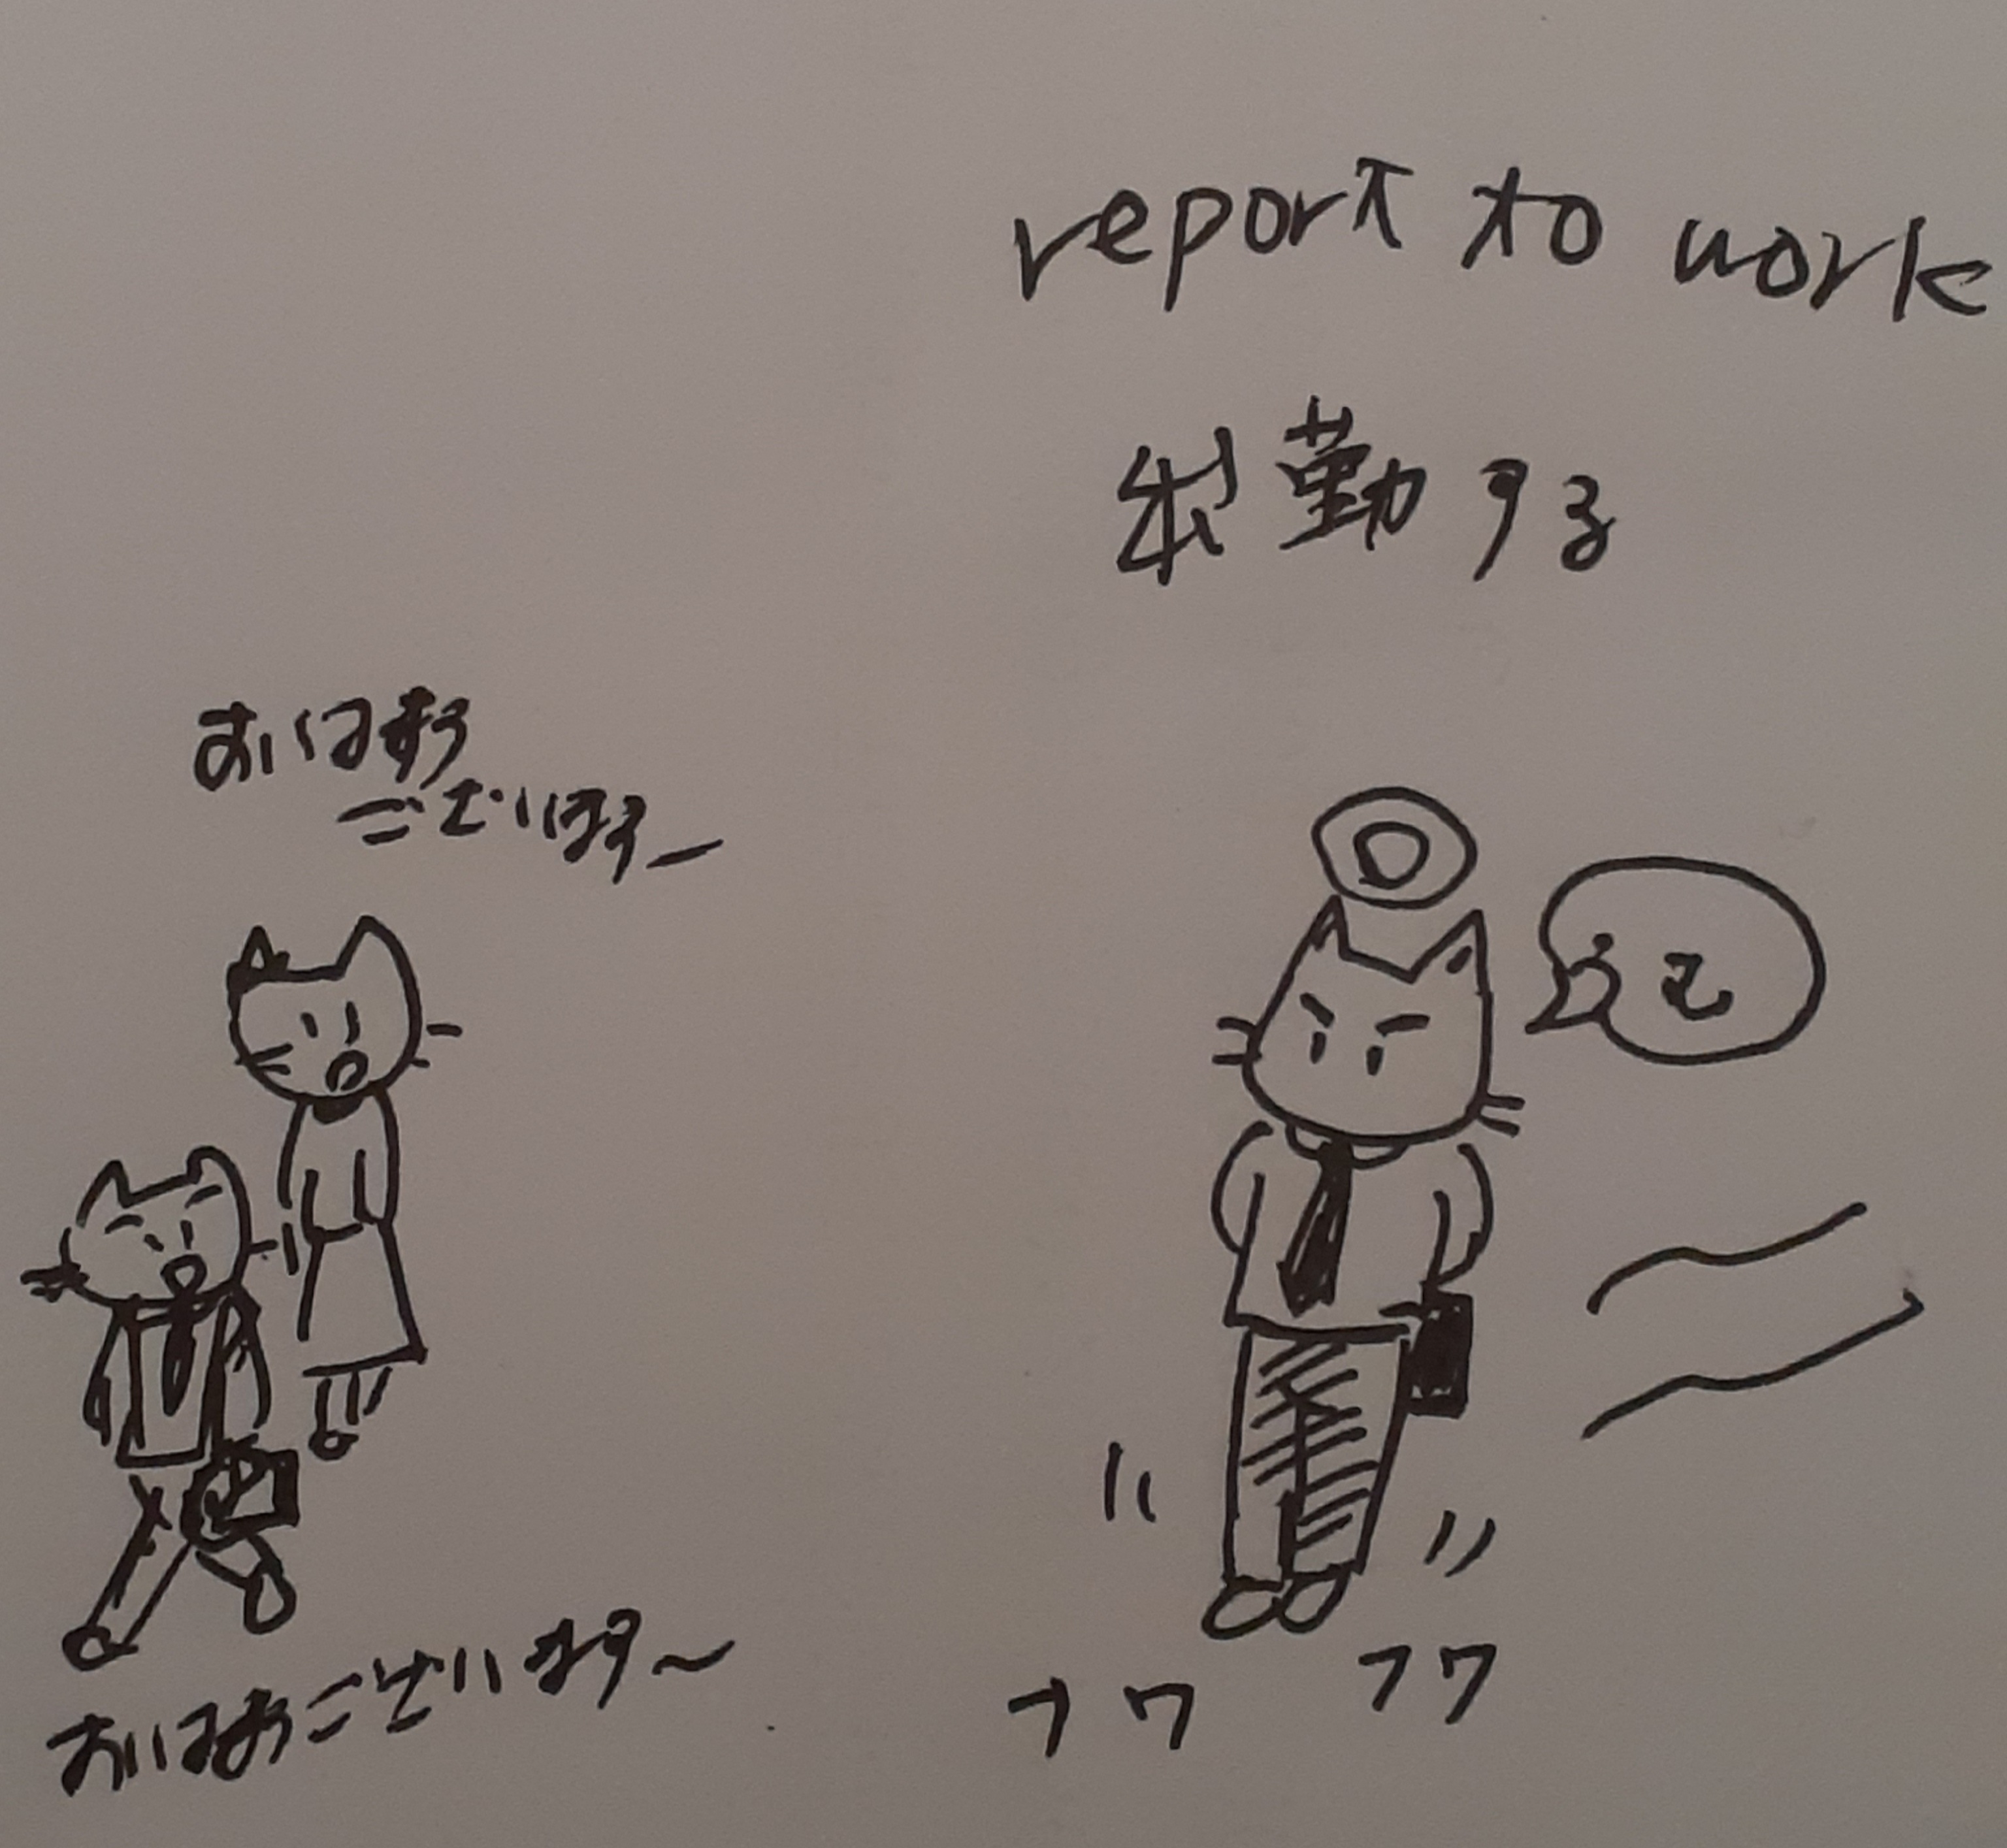 report to work
出勤する
おはおう
ございまうー
うむ
おはおございます～
フワ フワ